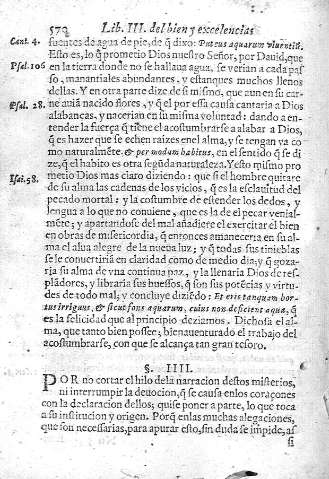 570 Lib. III. del bien y excelencias
Cant. 4. fuentes de agua de pie, de q̃ dixo: Puteus aquarum viuentiũ.
Esto es, lo q̃ prometio Dios nuestro Señor, por Dauid, que
Psal. 106 en la tierra donde no se hallaua agua, se verian a cada pas
so, manantiales abundantes, y estanques muchos llenos
dellas. Y en otra parte dize de si mismo, que aun en su car-
Psal. 28. ne auiã nacido flores, y q̃ el por essa causa cantaria a Dios
alabanças, y nacerian en su misma voluntad: dando a en-
tender la fuerça q̃ tiene el acostumbrarse a alabar a Dios,
q̃ es hazer que se echen raizes en el alma, y se tengan ya co
mo naturalmẽte. & per modum habitus, en el sentido q̃ se di
ze, q̃ el habito es otra segũda naturaleza. Y esto mismo pro
Isai. 58. metio Dios mas claro diziendo: que si el hombre quitare
de su alma las cadenas de los vicios, q̃ es la esclauitud del
pecado mortal: y la costumbre de estender los dedos, y
lengua a lo que no conuiene, que es la de el pecar venial-
mẽte; y apartandose del mal añadiere el exercitar el bien
en obras de misericordia, q̃ entonces amanecerìa en su al-
ma el alua alegre de la nueua luz; y q̃ todas sus tinieblas
se le conuertiriã en claridad como de medio dia; y q̃ goza-
ria su alma de vna continua paz, y la llenaria Dios de res-
plãdores, y libraria sus huessos, q̃ son sus potẽcias y virtu-
des de todo mal; y concluye diziẽdo: Et eris tanquam hor-
tus irriguus, & sicut fons aquarum, cuius non deficient aquæ, q̃
es la felicidad que al principio deziamos. Dichosa el al-
ma, que tanto bien possee; bienauenturado el trabajo del
acostumbrarse, con que se alcança tan gran tesoro.
§. IIII.
POR no cortar el hilo de la narracion destos misterios,
ni interrumpir la deuocion, q̃ se causa en los coraçones
con la declaracion dellos; quise poner a parte, lo que toca
a su institucion y origen. Porq̃ en las muchas alegaciones,
que son necessarias, para apurar esto, sin duda se impide, as
si